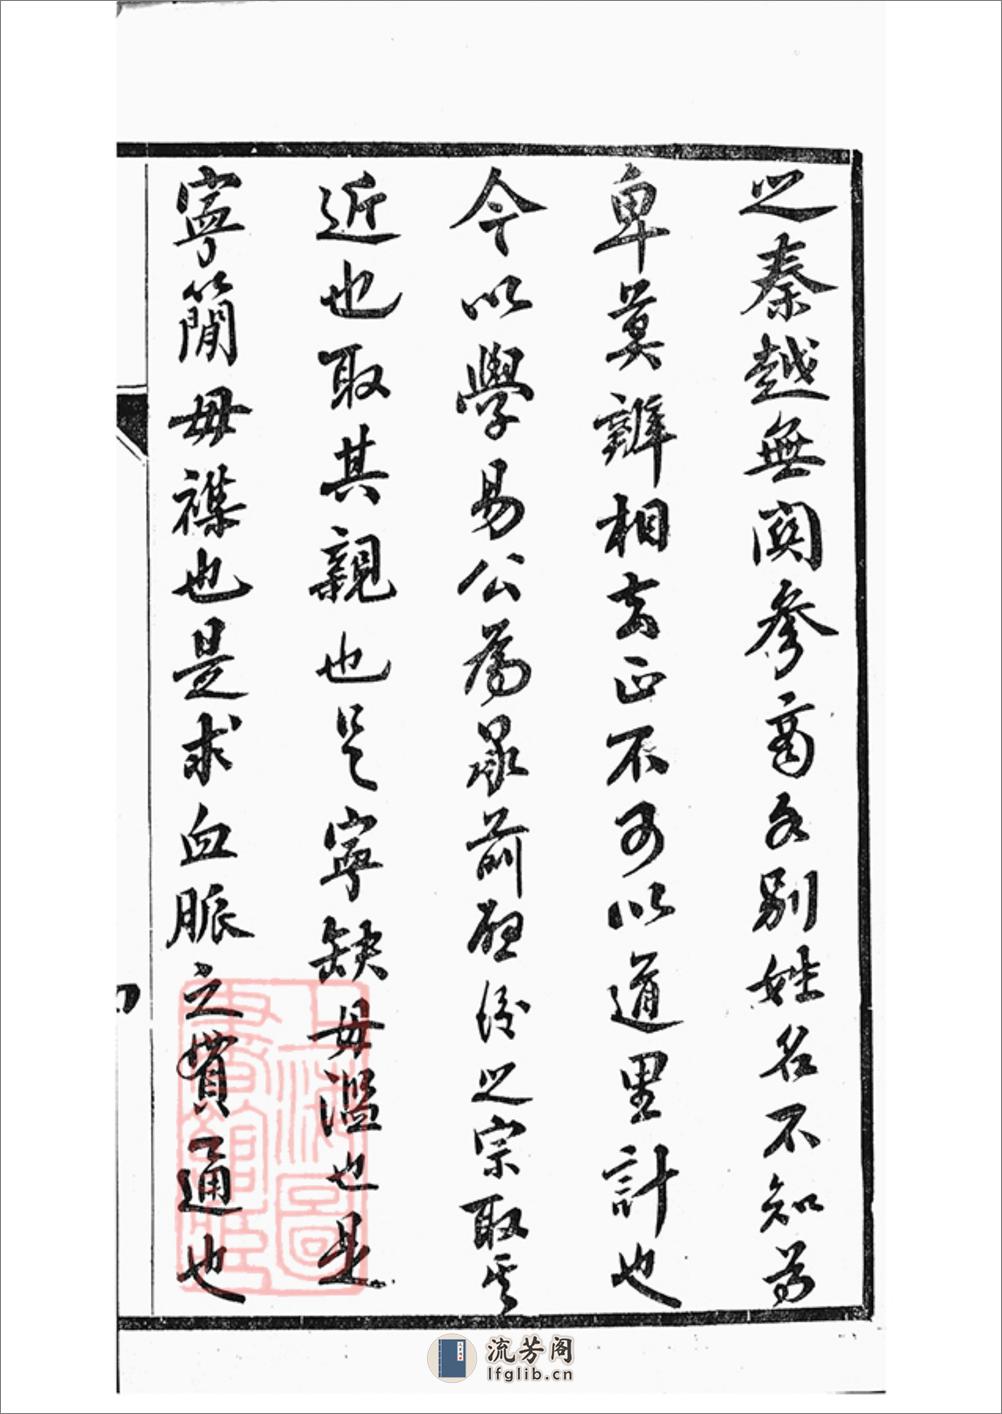 之秦越無関參商各別姓名不知尊
卑莫辨相去正不可以道里計也
今以學易公為承前啟後之宗取其
近也取其親也是寧缺毋濫也是
寧簡毋襍也是求血脈之貫通也
上海圖書館藏
流芳阁
lfglib.cn